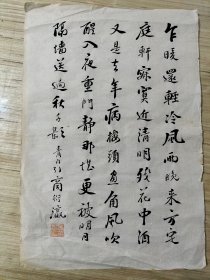 乍暖還輕冷風雨晚來方定
庭軒寂寞近清明殘花中酒
又是去年病樓頭畫角風吹
醒入夜重門靜那堪更被明月
隔墻送過秋千影
商衍瀛